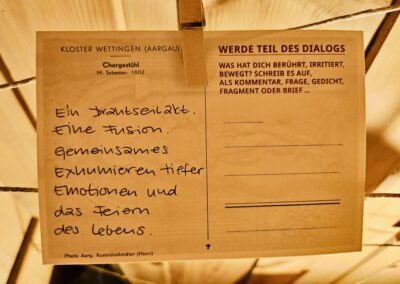 KLOSTER WETTINGEN (AARGAU)
Chorgestühl
Hl. Sebastian. 1602
Ein Drahtseilakt.
Eine Fusion.
Gemeinsames
Exhumieren tiefer
Emotionen und
das Feiern
des Lebens.
Photo Aarg. Kunstdenkmäler
WERDE TEIL DES DIALOGS
WAS HAT DICH BERÜHRT, IRRITIERT,
BEWEGT? SCHREIB ES AUF,
ALS KOMMENTAR, FRAGE, GEDICHT,
FRAGMENT ODER BRIEF ...